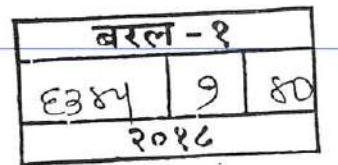 बरल - १
६३४५ ७ ४०
२०१८